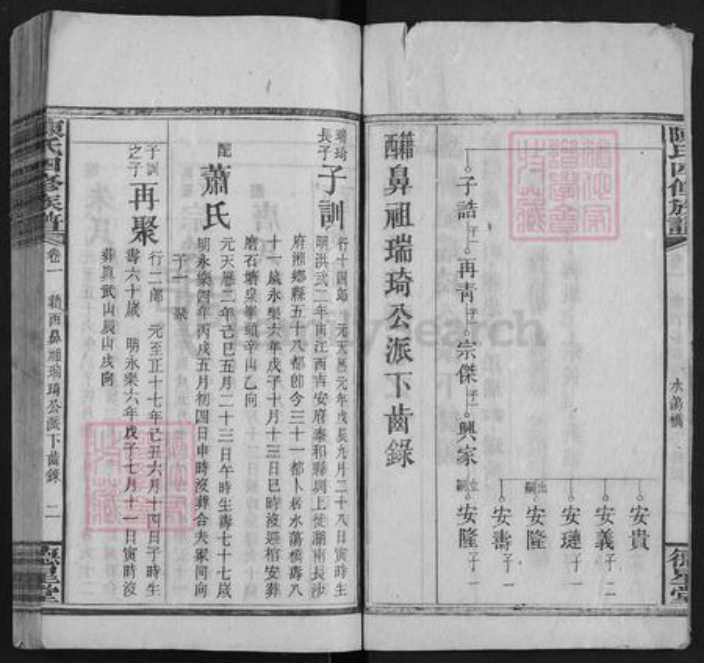 陳氏四修族譜
水蕩橋
安貴
安義 子二
安璉 子一
出嗣 安隆
安壽 子一
子誥 子一 再青 子一 宗傑 子一 興家 立嗣 安隆 子一
醴鼻祖瑞琦公派下齒錄
瑞琦長子 子訓
行十四郎 元天曆元年戊辰九月二十八日寅時生
明洪武二年由江西吉安府泰和縣圳上徙湖南長沙
府湘鄉縣五十八都卽今三十一都卜居水蕩橋壽八
十一歲永樂六年戊子十月十三日巳時沒選棺安葬
磨石塘 辛山乙向
配 蕭氏
元天曆二年己巳五月二十三日午時生壽七十七歲
明永樂四年丙戌五月初四日申時沒葬合夫冢同向
子一 聚
子訓之子 再聚
行二郎 元至正十七年乙丑六月十四日子時生
壽六十歲 明永樂六年戊子七月十一日寅時沒
葬真武山辰山戌向
陳氏四修族譜
卷一
鼻祖瑞琦公派下齒錄
二
德星堂
德星堂